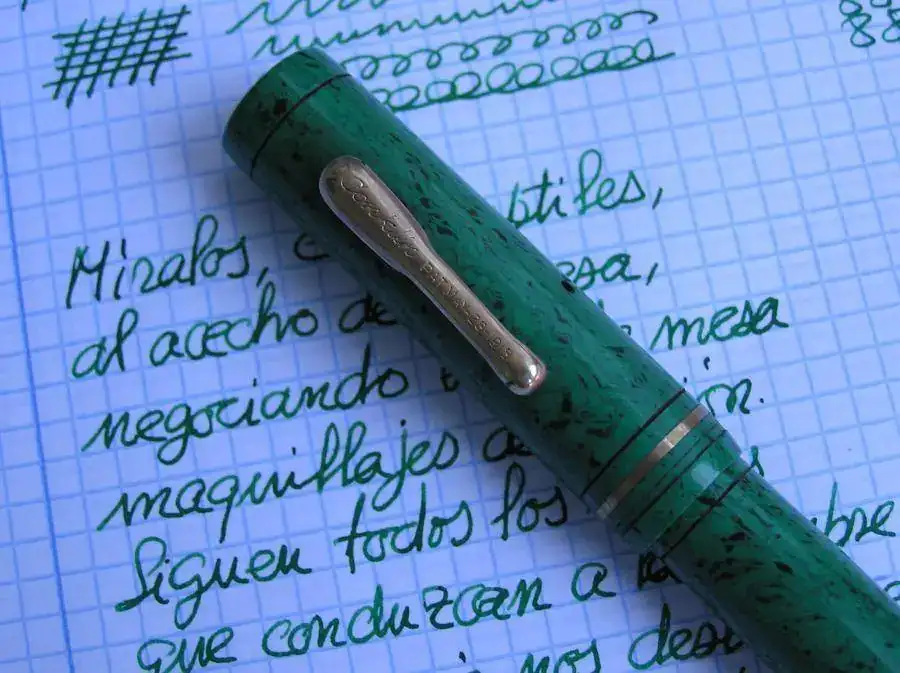 Míralos, c
ptiles,
al acecho de esa,
negociando mesa
maquillajes de ón.
Siguen todos los bre
que conduzcan a la
nos des
Conklin
PAT. 5-28-18